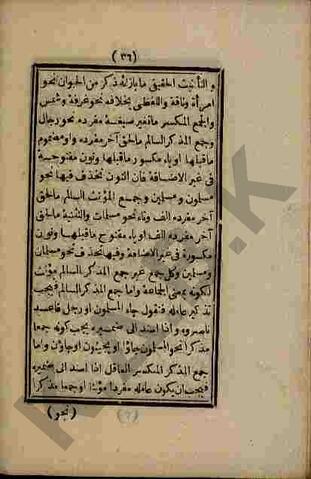 (٣٦)
والتأنيث الحقيقى ما بازائه ذكر من الحيوان نحو
امرأة وناقة واللفظى بخلافه نحو غرفة وشمس
والجمع المكسر ما تغير صيغة مفرده نحو رجال
وجمع المذكر السالم ما لحق آخر مفرده واو مضموم
ما قبلها او ياء مكسور ما قبلها ونون مفتوحة
فى غير الاضافة فان النون تحذف فيها نحو
مسلمون ومسلمين وجمع المؤنث السالم ما لحق
آخر مفرده الف وتاء نحو مسلمات والتثنية ما لحق
آخر مفرده الف او ياء مفتوح ما قبلها ونون
مكسورة فى غير الاضافة وفيها تحذف نحو مسلمان
ومسلمين وكل جمع غير جمع المذكر السالم مؤنث
لكونه بمعنى الجماعة واما جمع المذكر السالم فيجب
تذكير عامله فتقول جاء المسلمون او رجل قاعد
ناصروه واذا اسند الى ضميره يجب كونه جمعا
مذكرا نحو المسلمون جاؤا او يجيئون او جاؤن واما
جمع المذكر المكسر العاقل اذا اسند الى ضميره
فيجب ان يكون عامله مفردا مؤنثا او جمعا مذكرا
(نحو)